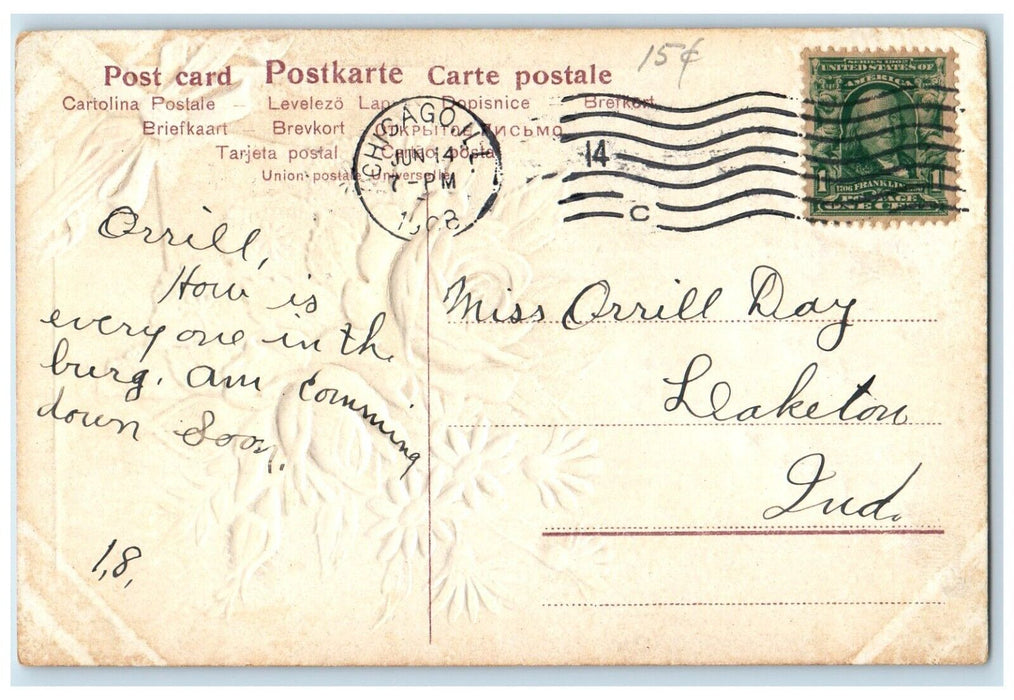 Post card Postkarte Carte postale
15¢
Cartolina Postale – Levelező Lap – Dopisnice – Brefkort
Briefkaart – Brevkort – Открытое письмо
Tarjeta postal – postal
Union postale Universelle
CHICAGO, ILL.
JUN 14
7-PM
1908
14
C
SERIES 1902
UNITED STATES OF
AMERICA
1 FRANKLIN 1
POSTAGE
ONE CENT
Orrill,
How is
every one in the
burg. Am comming
down Soon.
1,8,
Miss Orrill Day
Laketon
Ind.